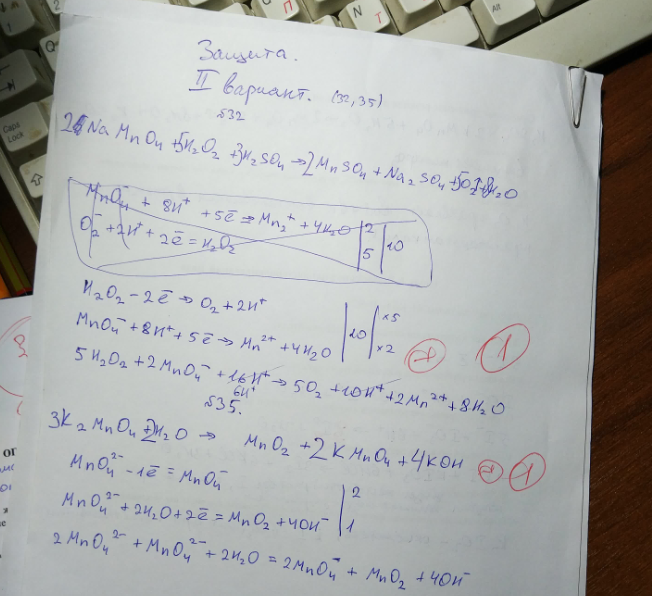 Защита.
II вариант. (32, 35)
№32
2NaMnO₄ + 5H₂O₂ + 3H₂SO₄ → 2MnSO₄ + Na₂SO₄ + 5O₂↑ + 8H₂O
MnO₄⁻ + 8H⁺ + 5ē → Mn₂⁺ + 4H₂O | 2
O₂⁻ + 2H⁺ + 2ē = H₂O₂ | 5 | 10
H₂O₂ - 2ē → O₂ + 2H⁺ | ×5
MnO₄⁻ + 8H⁺ + 5ē → Mn²⁺ + 4H₂O | 10 | ×2
1
5H₂O₂ + 2MnO₄⁻ + 16H⁺ → 5O₂ + 10H⁺ + 2Mn²⁺ + 8H₂O
6H⁺
№35.
3K₂MnO₄ + 2H₂O → MnO₂ + 2KMnO₄ + 4KOH
1
MnO₄²⁻ - 1ē = MnO₄⁻ | 2
MnO₄²⁻ + 2H₂O + 2ē = MnO₂ + 4OH⁻ | 1
2MnO₄²⁻ + MnO₄²⁻ + 2H₂O = 2MnO₄⁻ + MnO₂ + 4OH⁻
Caps
Lock